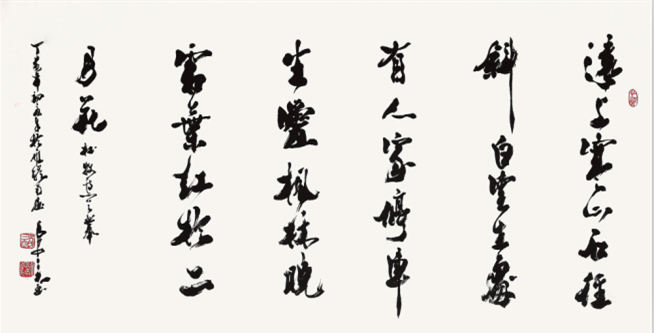 遠上寒山石徑
斜白雲生處
有人家停車
坐愛楓林晚
霜葉紅於二
月花 杜牧詩
丁亥年初